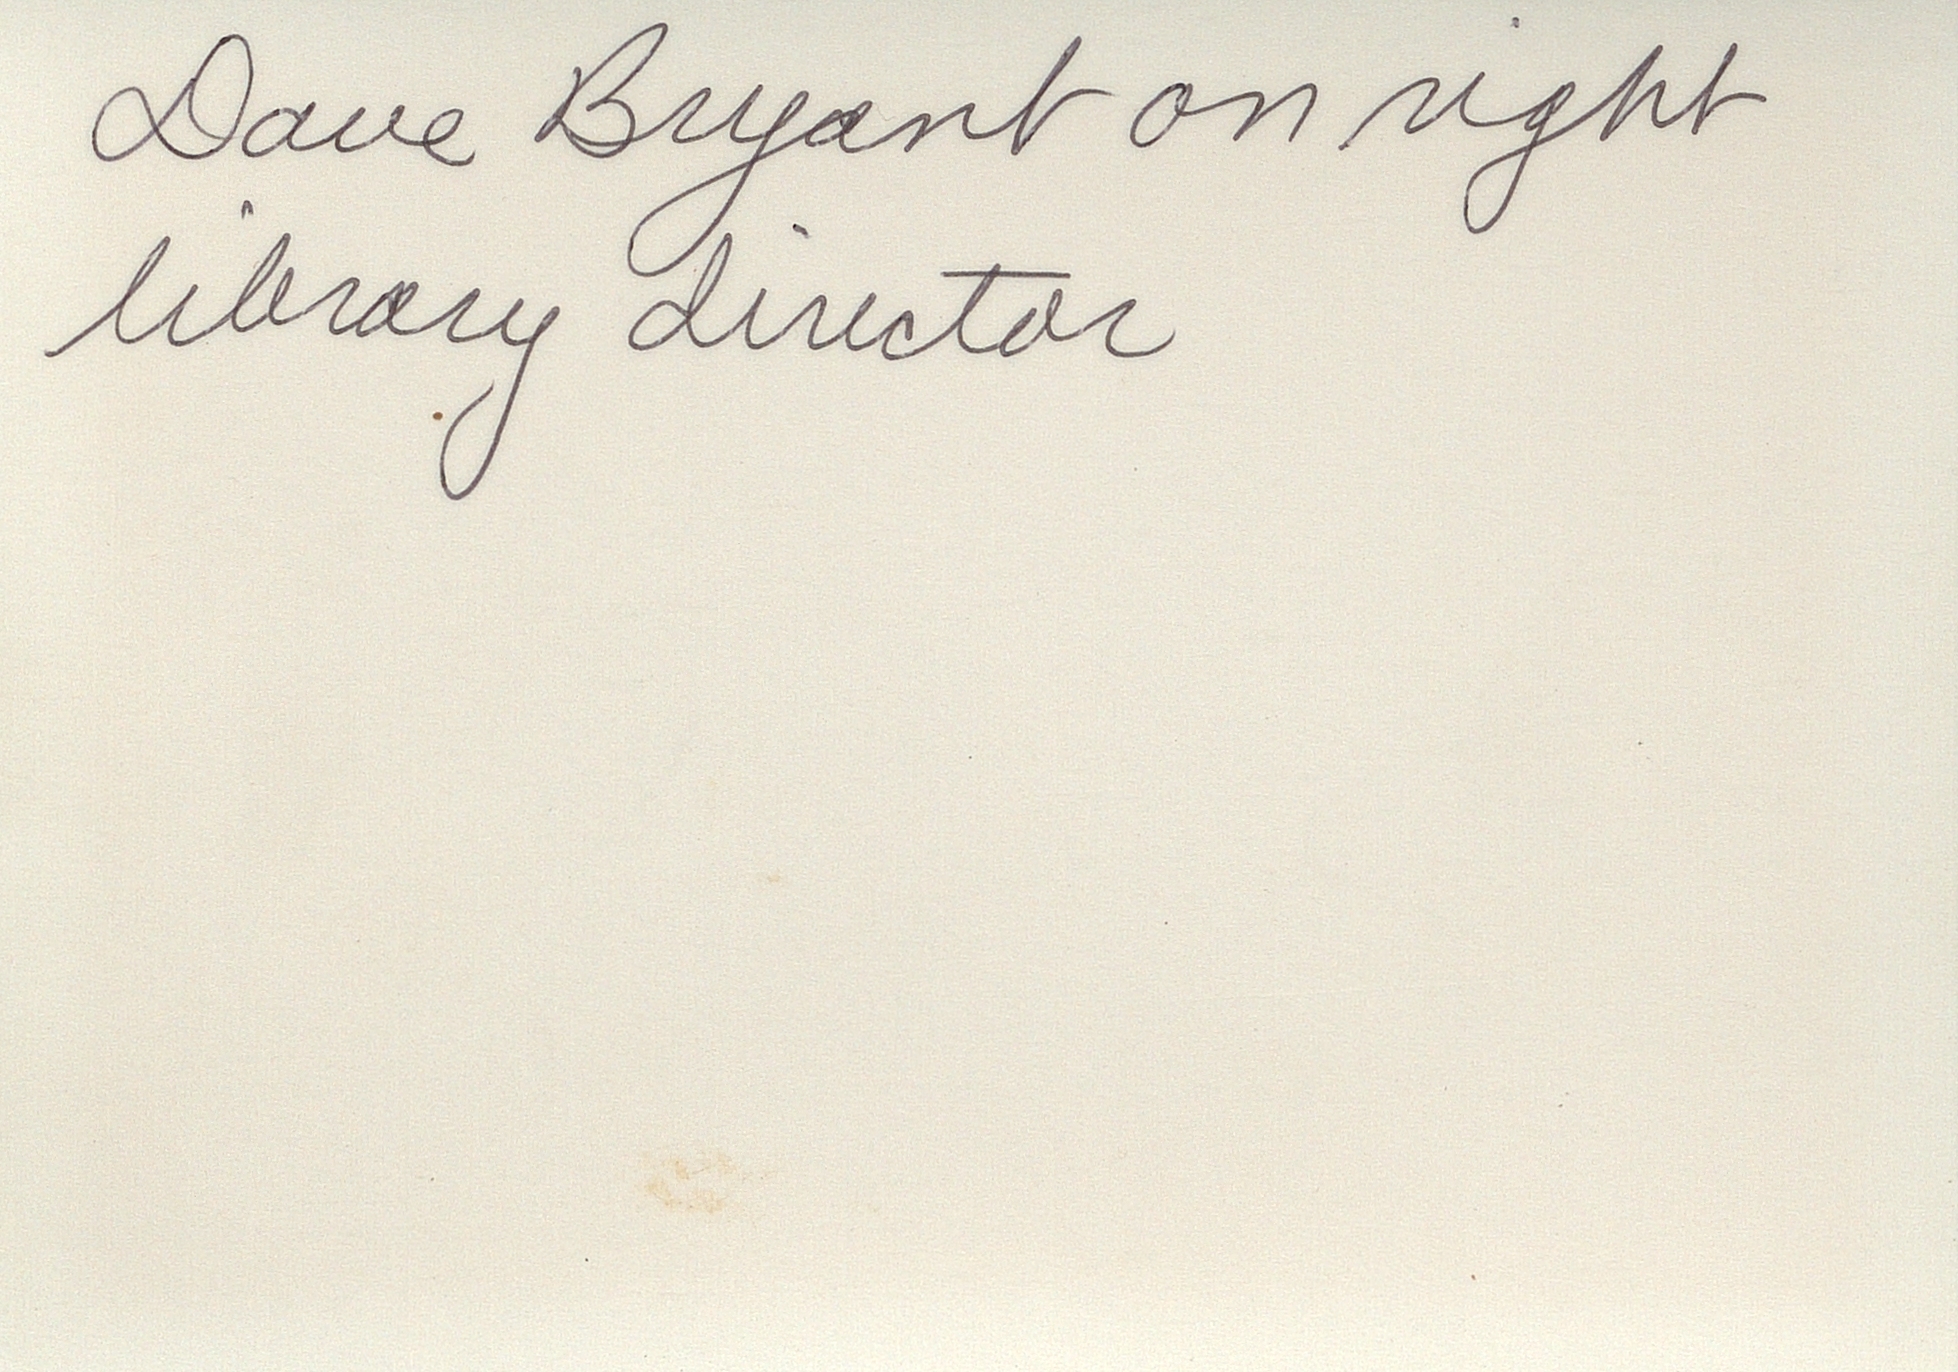 Dave Bryant on right
library director